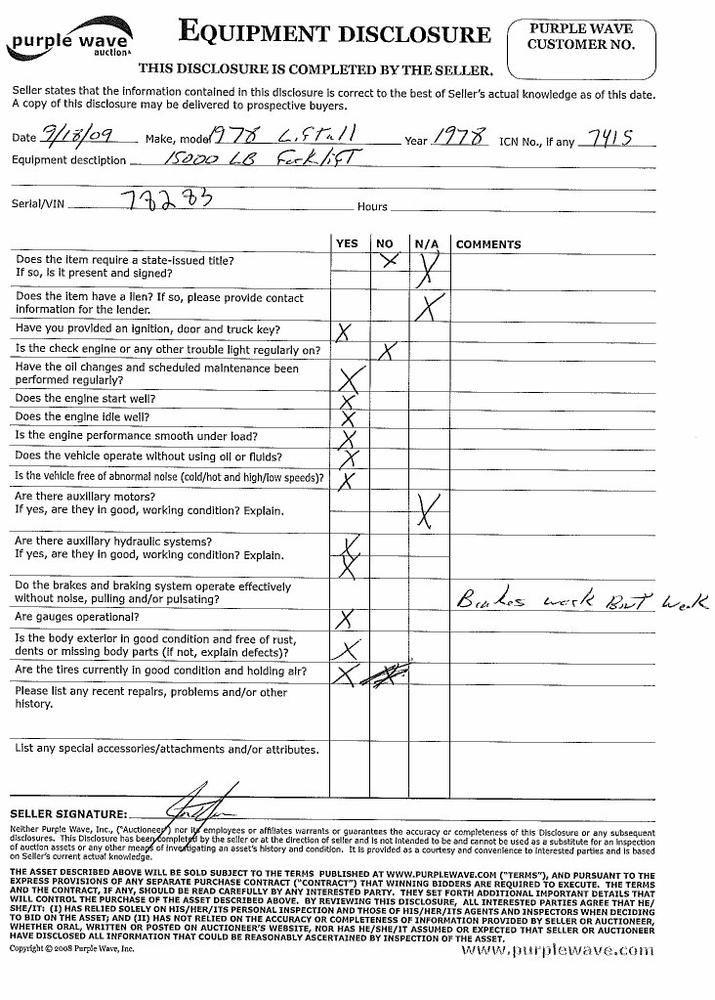 purple wave
auction
EQUIPMENT DISCLOSURE
PURPLE WAVE
CUSTOMER NO.
THIS DISCLOSURE IS COMPLETED BY THE SELLER.
Seller states that the information contained in this disclosure is correct to the best of Seller's actual knowledge as of this date.
A copy of this disclosure may be delivered to prospective buyers.
Date 9/18/09 Make, model 1978 Liftall Year 1978 ICN No., if any 7415
Equipment desctiption 15000 LB Forklift
Serial/VIN 78283 Hours
YES NO N/A COMMENTS
Does the item require a state-issued title? X
If so, is it present and signed? X
Does the item have a lien? If so, please provide contact
information for the lender. X
Have you provided an ignition, door and truck key? X
Is the check engine or any other trouble light regularly on? X
Have the oil changes and scheduled maintenance been
performed regularly? X
Does the engine start well? X
Does the engine idle well? X
Is the engine performance smooth under load? X
Does the vehicle operate without using oil or fluids? X
Is the vehicle free of abnormal noise (cold/hot and high/low speeds)? X
Are there auxiliary motors?
If yes, are they in good, working condition? Explain. X
Are there auxiliary hydraulic systems? X
If yes, are they in good, working condition? Explain. X
Do the brakes and braking system operate effectively
without noise, pulling and/or pulsating? Brakes work But Weak
Are gauges operational? X
Is the body exterior in good condition and free of rust,
dents or missing body parts (if not, explain defects)? X
Are the tires currently in good condition and holding air? X
Please list any recent repairs, problems and/or other
history.
List any special accessories/attachments and/or attributes.
SELLER SIGNATURE:
Neither Purple Wave, Inc., ("Auctioneer") nor its employees or affiliates warrants or guarantees the accuracy or completeness of this Disclosure or any subsequent
disclosures. This Disclosure has been completed by the seller or at the direction of seller and is not intended to be and cannot be used as a substitute for an inspection
of auction assets or any other means of investigating an asset's history and condition. It is provided as a courtesy and convenience to interested parties and is based
on Seller's current actual knowledge.
THE ASSET DESCRIBED ABOVE WILL BE SOLD SUBJECT TO THE TERMS PUBLISHED AT WWW.PURPLEWAVE.COM ("TERMS"), AND PURSUANT TO THE
EXPRESS PROVISIONS OF ANY SEPARATE PURCHASE CONTRACT ("CONTRACT") THAT WINNING BIDDERS ARE REQUIRED TO EXECUTE. THE TERMS
AND THE CONTRACT, IF ANY, SHOULD BE READ CAREFULLY BY ANY INTERESTED PARTY. THEY SET FORTH ADDITIONAL IMPORTANT DETAILS THAT
WILL CONTROL THE PURCHASE OF THE ASSET DESCRIBED ABOVE. BY REVIEWING THIS DISCLOSURE, ALL INTERESTED PARTIES AGREE THAT HE/
SHE/IT: (I) HAS RELIED SOLELY ON HIS/HER/ITS PERSONAL INSPECTION AND THOSE OF HIS/HER/ITS AGENTS AND INSPECTORS WHEN DECIDING
TO BID ON THE ASSET; AND (II) HAS NOT RELIED ON THE ACCURACY OR COMPLETENESS OF INFORMATION PROVIDED BY SELLER OR AUCTIONEER,
WHETHER ORAL, WRITTEN OR POSTED ON AUCTIONEER'S WEBSITE, NOR HAS HE/SHE/IT ASSUMED OR EXPECTED THAT SELLER OR AUCTIONEER
HAVE DISCLOSED ALL INFORMATION THAT COULD BE REASONABLY ASCERTAINED BY INSPECTION OF THE ASSET.
Copyright © 2008 Purple Wave, Inc.
www.purplewave.com